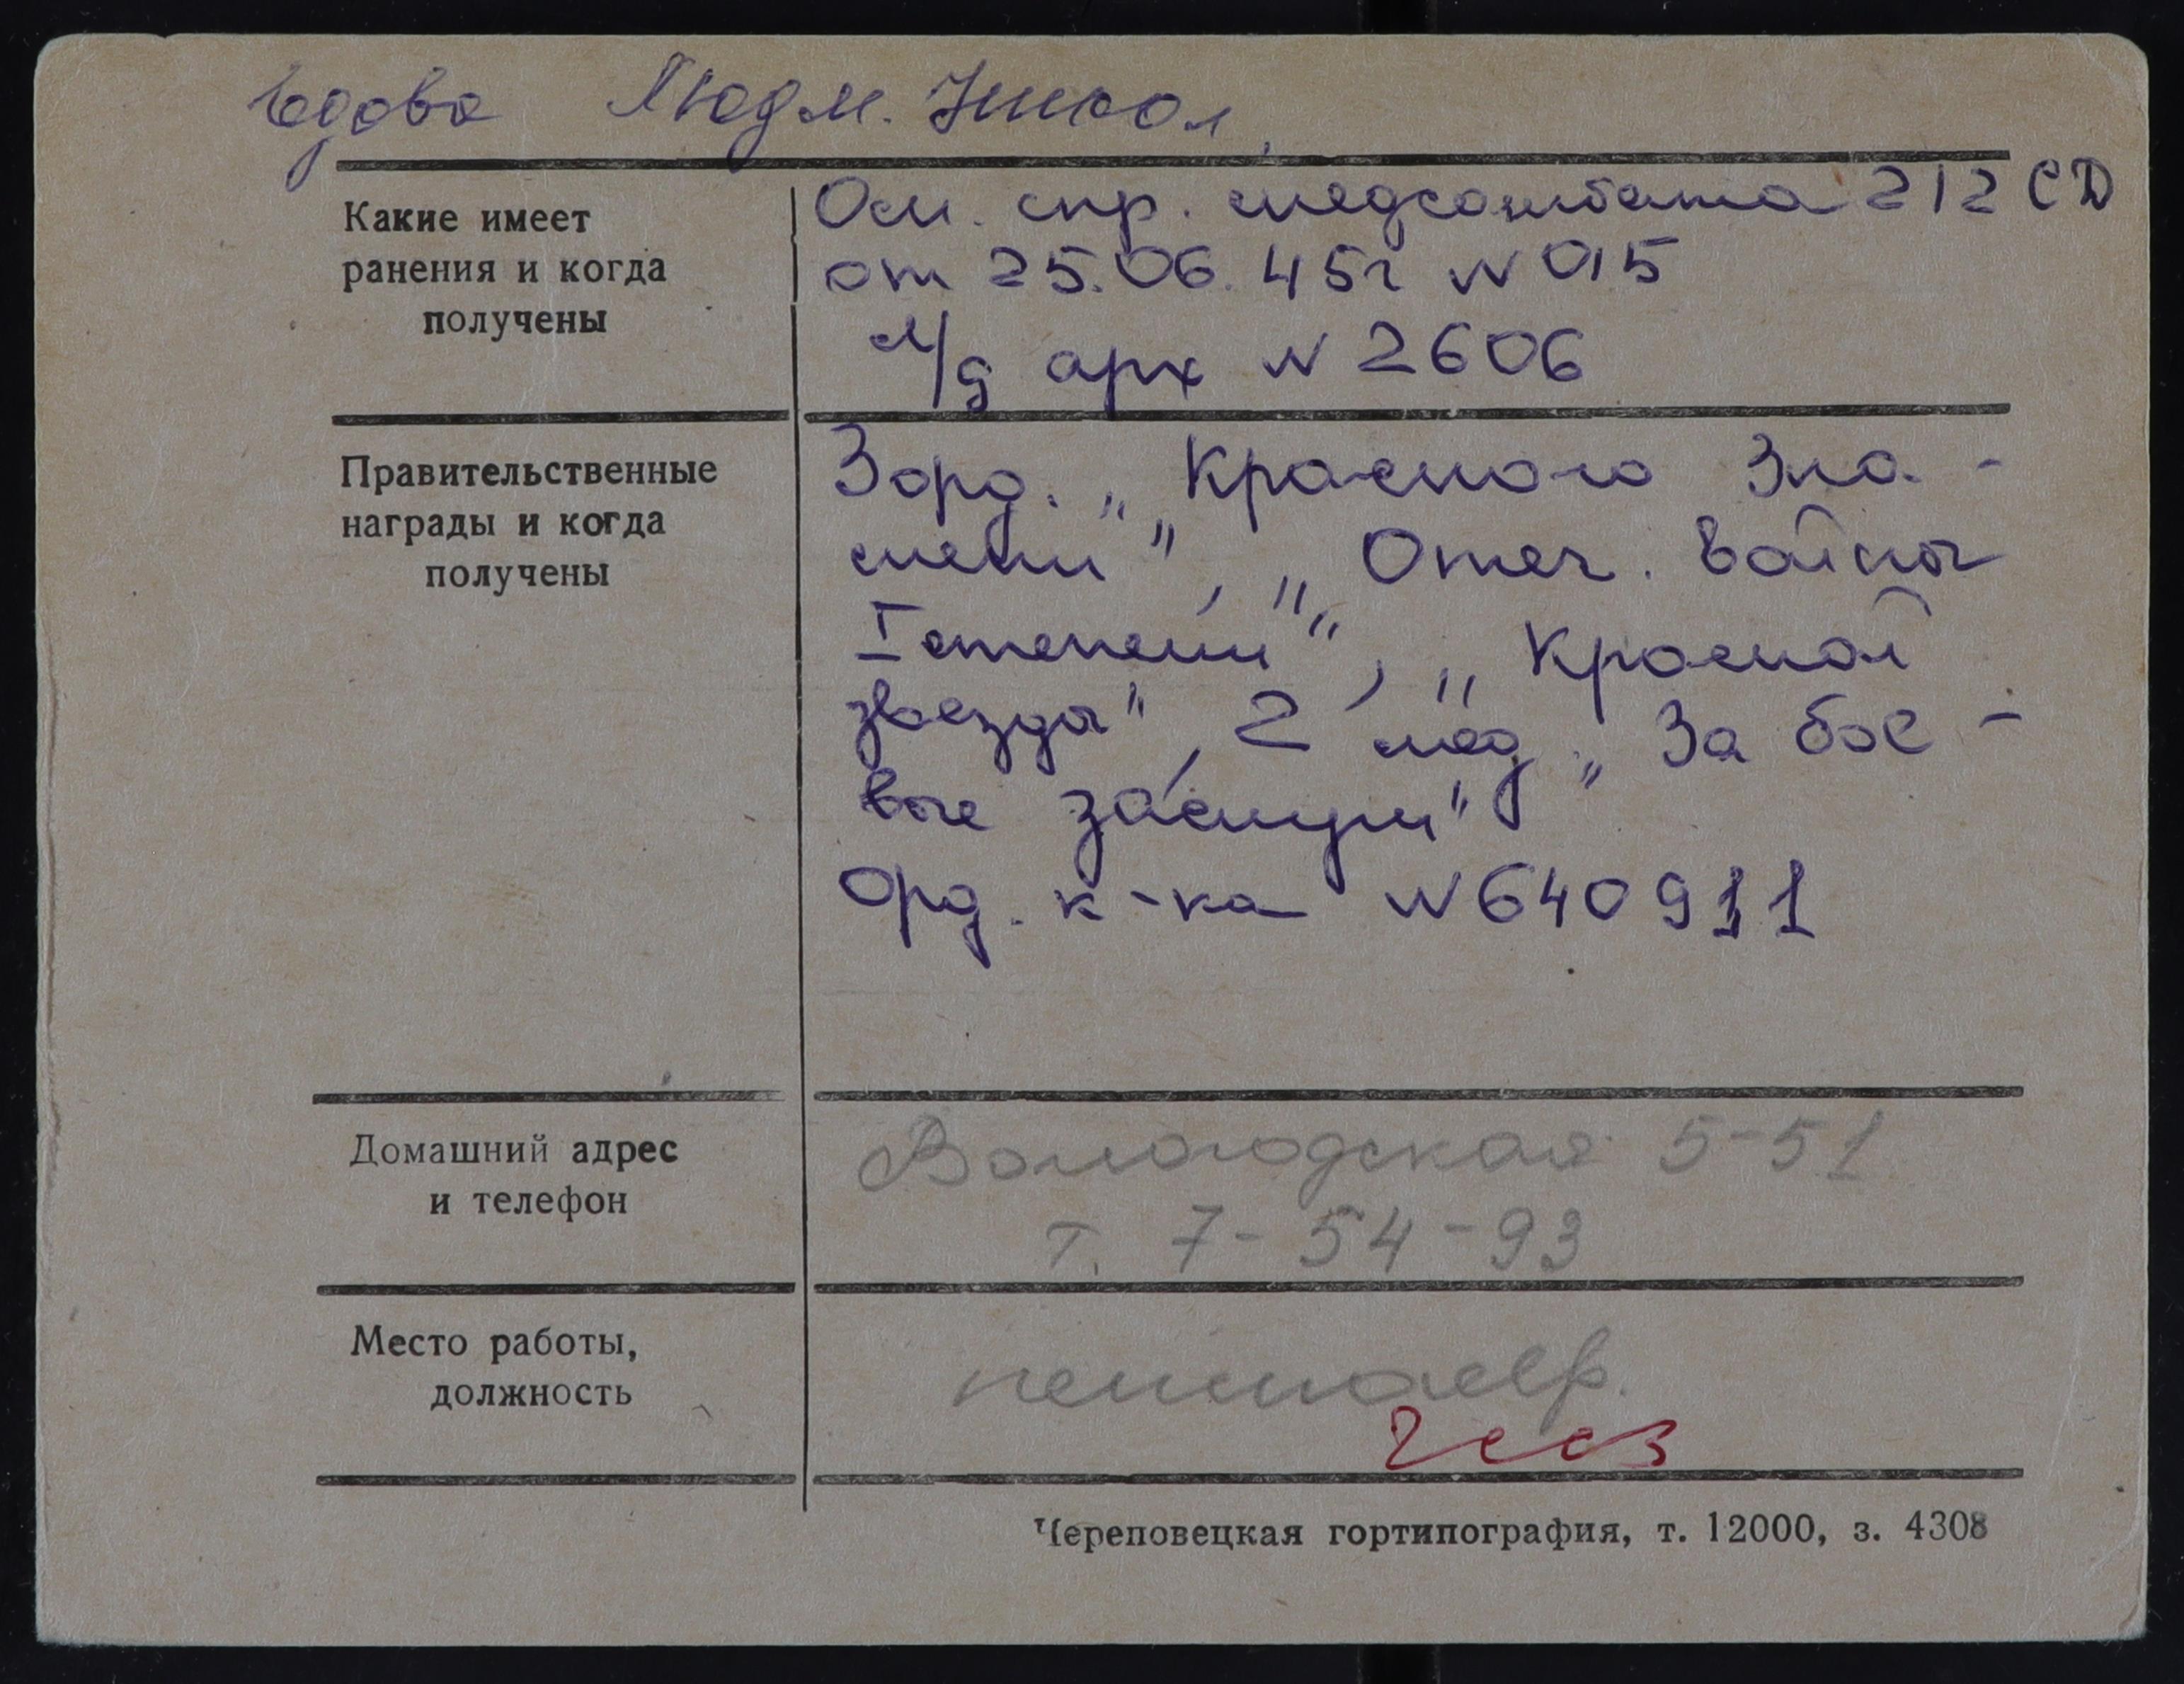 вдова Людм. Никол.
Какие имеет
ранения и когда
получены
Осн. спр. медсанбата 212 СД
от 25.06.45г N 015
и/д арх N 2606
Правительственные
награды и когда
получены
3 орд. „Красного Зна-
мени", „Отеч. войны
I степени", „Красной
звезды", 2 мед. „За бое-
вые заслуги"
Орд. к-ка N 640911
Домашний адрес
и телефон
Вологодская 5-51
т. 7-54-93
Место работы,
должность
пенсионер.
Череповецкая гортипография, т. 12000, з. 4308